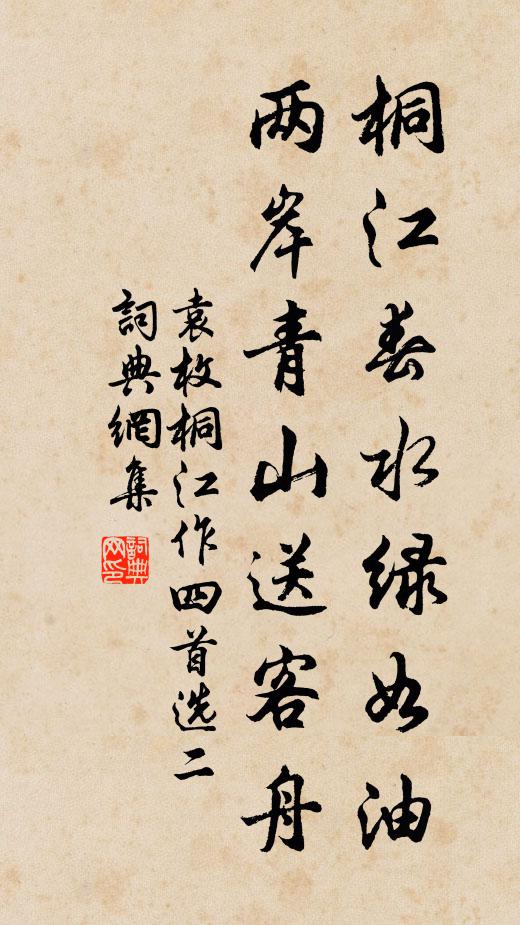 桐江春水绿如油
两岸青山送客舟
袁枚桐江作四首选二
詞典網集
詞典网印